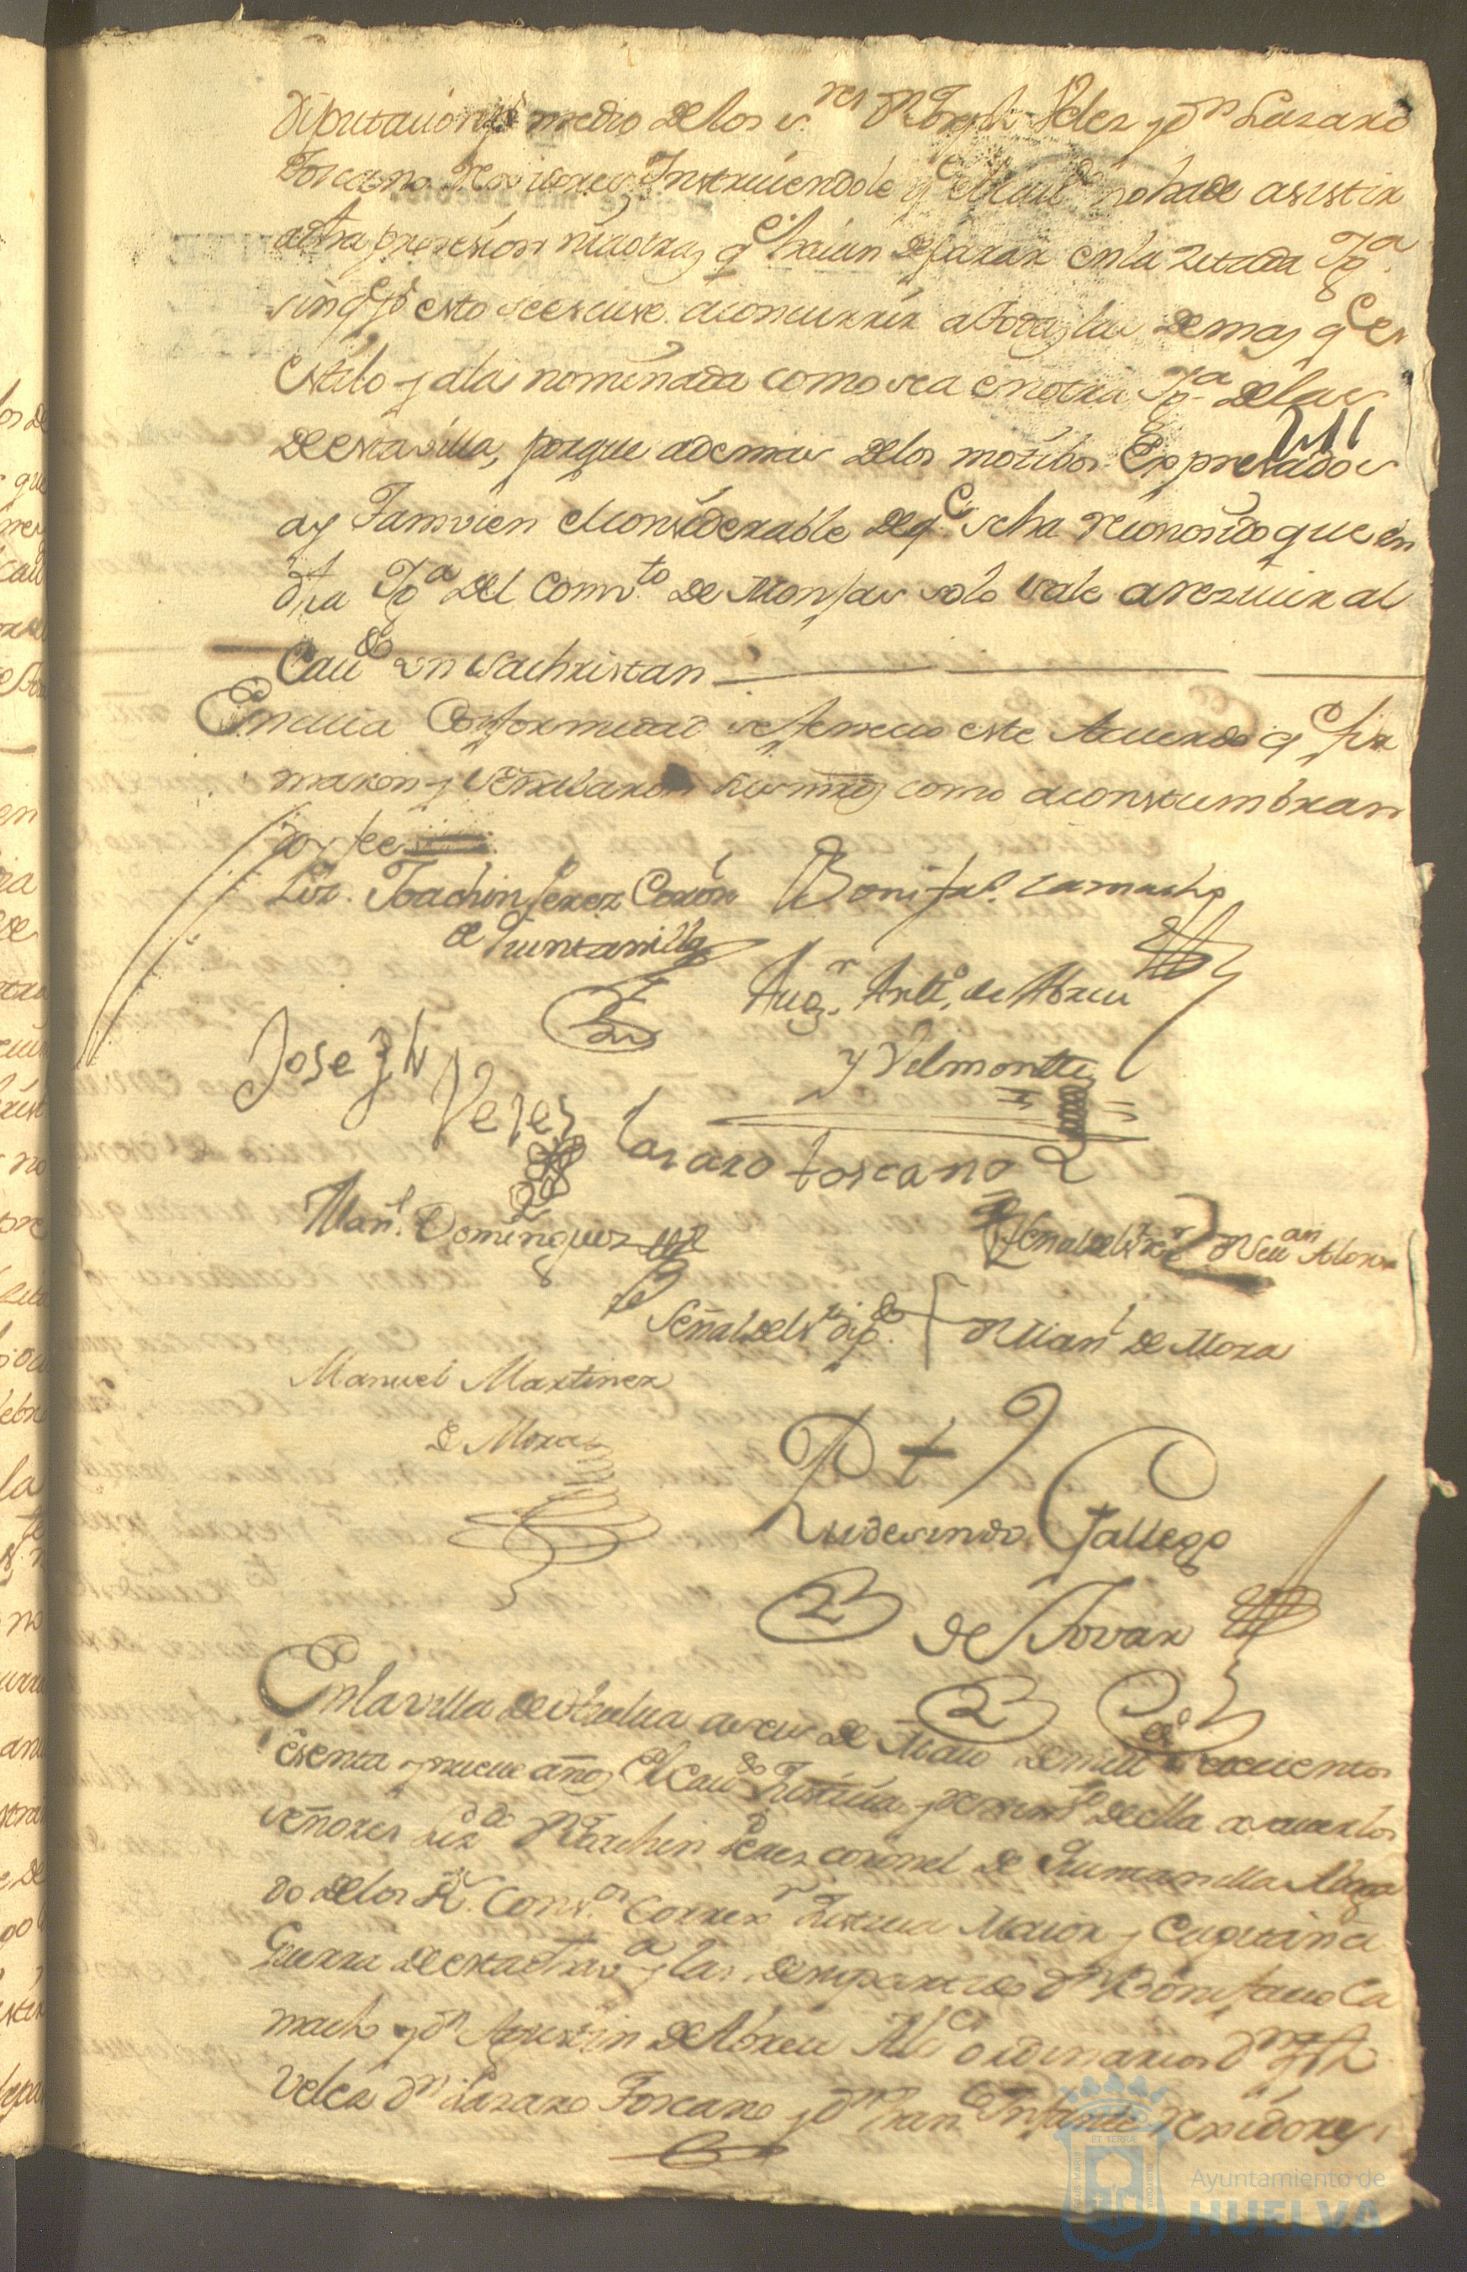 Diputacion pr medio de los sres Dn Joseph Velez y Dn Lazaro
Toscano Rexidores, Instruiendole qe el Cavdo no ha de asistir
a dha prosesion ni a otras qe haian de parar en la zitada Yga
sin qe pr esto se escuse a concurrir a todas las demas qe es
estilo y a la nominada como sea en otra Yga de las
de esta villa, porque ademas de los motibos Expresados
ay Tamvien el considerable de qe se ha reconosido que en
dha Yga del Convto de Monjas solo sale a rezivir al
Cavdo un Sachristan
En cuia Conformidad se fenecio este Acuerdo qe fir
maron y señalaron sus mrds como acostumbran
doy fee
Liz. Joachin Perez Coron
de Quintanilla
Bonifao. Camacho
Augn. Anto. de Abreu
y Velmonte
Joseph
Velez
Lazaro toscano
Manl. Dominguez
Señal del Sr Rr Dn Sevan Alonso
Señal del Sr dipdo Dn Manl de Mora
Manuel Martinez
de Mora
Rudesindo Gallego
de Tovar
En la villa de Huelva a seis de Maio de mill setecientos
sesenta y nueve años el Cavdo Justicia y Rexim.to de ella a saver los
señores Lizdo Dn Joachin Perez Coronel de Quintanilla Aboga
do de los Rs. Consos Correxr Justicia Maior y Capitan a
Guerra de esta dha va y las de su partido Dn Bonifacio Ca
macho y Dn Agustin de Abreu Alces ordinarios Dn Jph
Velez Dn Lazaro Toscano y Dn Franco Infante Rexidores
211
Ayuntamiento de
HUELVA